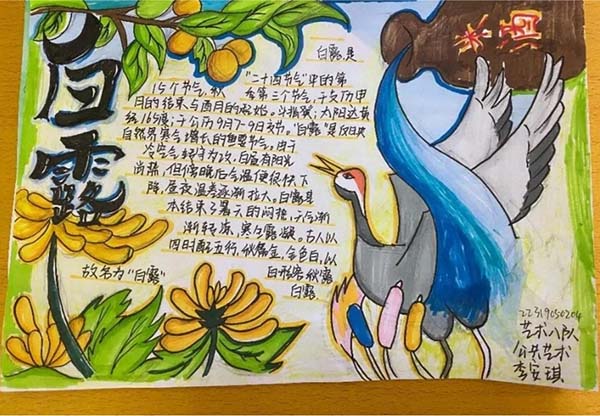 白露
米酒
白露是
"二十四节气"中的第
15个节气，秋季第三个节气，于干支历申
月的结束与酉月的起始。斗指癸；太阳达黄
经165度；于公历9月7-9日交节。"白露"是反映
自然界寒气增长的重要节气。由于
冷空气转守为攻，白昼有阳光
尚热，但傍晚后气温便很快下
降，昼夜温差逐渐拉大。白露基
本结束了暑天的闷热，天气渐
渐转凉，寒生露凝。古人以
四时配五行，秋属金，金色白，以
白形容秋露
故名为"白露"
白露
22319050204
艺术八队
公共艺术
李安琪